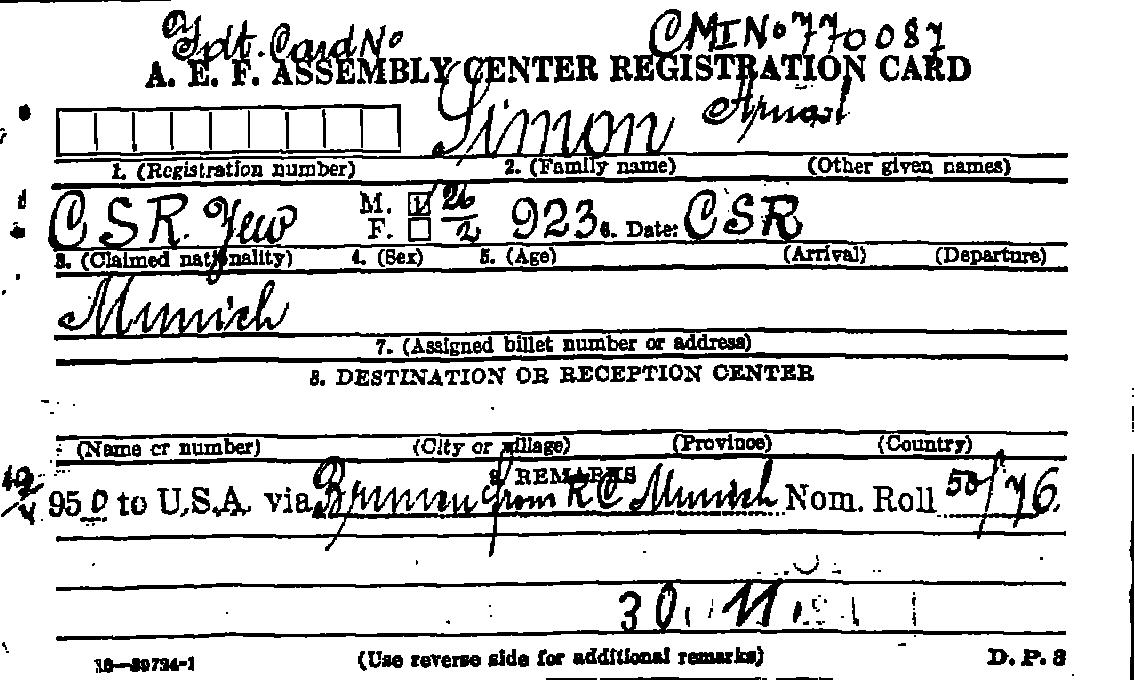 Idt. Card No CMI No 770087
A. E. F. ASSEMBLY CENTER REGISTRATION CARD
Simon Arnost
1. (Registration number) 2. (Family name) (Other given names)
CSR. Jew M. 26/2 923 6. Date: CSR
F.
3. (Claimed nationality) 4. (Sex) 5. (Age) (Arrival) (Departure)
Munich
7. (Assigned billet number or address)
8. DESTINATION OR RECEPTION CENTER
(Name or number) (City or village) (Province) (Country)
9. REMARKS
950 to U.S.A. via Bremen from RC Munich Nom. Roll 50/76.
30. 11.
16—39734-1 (Use reverse side for additional remarks) D. P. 3